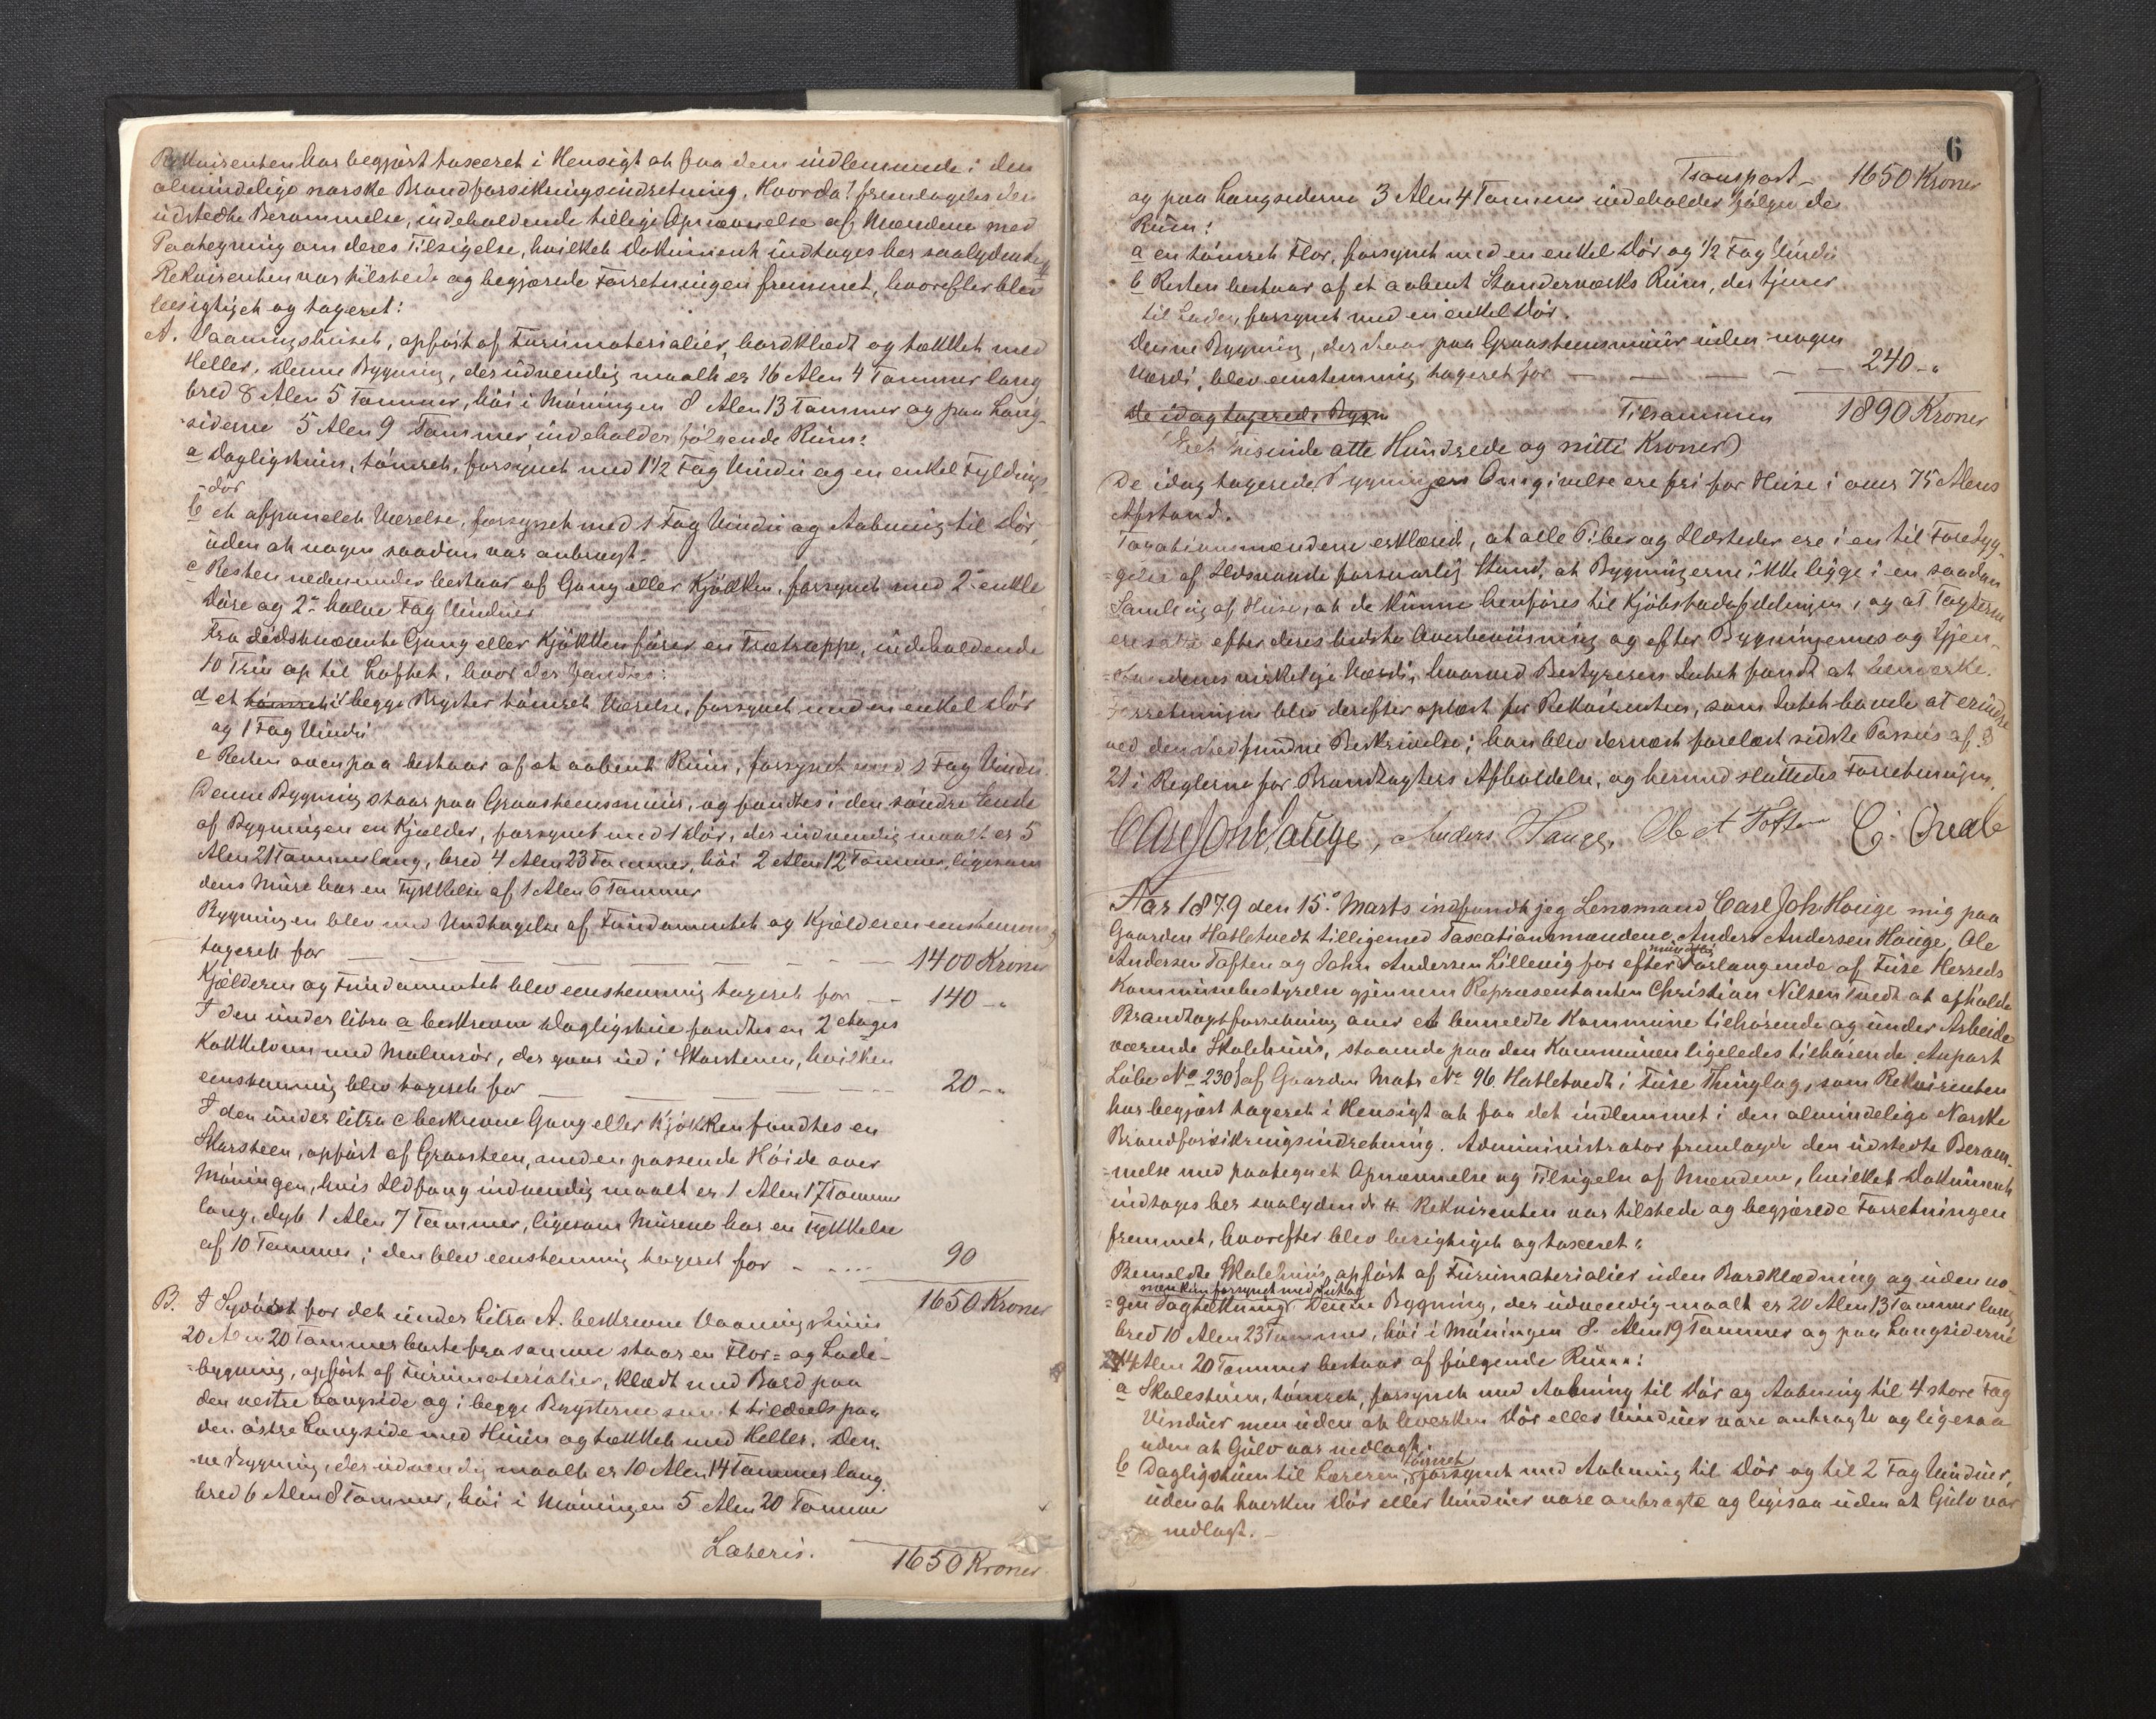 Rekvirenten har begjært taxeret i Hensigt at faa dem indlemmede i den
almindelige norske Brandforsikringsindretning. Hvorda! fremlagdes den
udstedte Berammelse, indeholdende tillige Opnævnelse af Mændene med
Paategning om deres Tilsigelse, hvilket Dokument indtages her saalydende #
Rekvirenten var tilstede og begjærede Forretningen fremmet, hvorefter blev
besigtiget og taxeret:
A. Vaaningshuset, opført af Furumaterialier, bordklædt og tækket med
Heller. Denne Bygning, der udvendig maalt er 16 Alen 4 Tommer lang
bred 8 Alen 5 Tommer, høi i Møningen 8 Alen 13 Tommer og paa Lang-
-siderne 5 Alen 9 Tommer indeholder følgende Rum:
a Dagligstuen, tømret, forsynet med 1 1/2 Fag Vindu og en enkel Fyldings
-dør
b et afpanelet Værelse, forsynet med 1 Fag Vindu og Aabning til Dør,
uden at nogen saadan var anbragt.
c Resten nedenunder bestaar af Gang eller Kjøkken, forsynet med 2 enkle
Døre og 2 halve Fag Vinduer
Fra sidstnævnte Gang eller Kjøkken fører en Trætrappe, indeholdende
10 Trin op til Loftet, hvor der fandtes:
d et tømret i begge Bryster tømret Værelse, forsynet med en enkel Dør
og 1 Fag Vindu
e Resten ovenpaa bestaar af et aabent Rum, forsynet med 1 Fag Vindu.
Denne Bygning staar paa Graasteensmuur, og fandtes i den søndre Ende
af Bygningen en Kjælder, forsynet med 1 Dør, der indvendig maalt er 5
Alen 21 Tommer lang, bred 4 Alen 23 Tommer, høi 2 Alen 12 Tommer, ligesom
dens Mure har en Tykkelse af 1 Alen 6 Tommer
Bygningen blev med Undtagelse af Fundamentet og Kjælderen eenstemmig
taxeret for — — — — — 1400 Kroner
Kjælderen og Fundamentet blev eenstemmig taxeret for — 140 - "
I den under litra a beskrevne Dagligstue fandtes en 2 etages
Kakkelovn med Malmrør, der gaar ud i Skorstenen, hvilken
eenstemmig blev taxeret for — — — 20 - "
I den under litra c beskrevne Gang eller Kjøkken fandtes en
Skorsteen, opført af Graasteen, med en passende Høide over
Møningen, hvis Ildfang indvendig maalt er 1 Alen 17 Tommer
lang, dyb 1 Alen 7 Tommer, ligesom Murene har en Tykkelse
af 10 Tommer; den blev eenstemmig taxeret for - - - 90
1650 Kroner
B. I Sydvest for det under Litra A. beskrevne Vaaningshuus
20 Alen 20 Tommer borte fra samme staar en Flor- og Lade-
-bygning, opført af Furumaterialier, klædt med Bord paa
den vestre Langside og i begge Brysterne samt tildeels paa
den østre Langside med Huun og tækket med Heller. Den-
-ne Bygning, der udvendig maalt er 10 Alen 14 Tommer lang
bred 6 Alen 8 Tommer, høi i Møningen 5 Alen 20 Tommer
Lateris. 1650 Kroner
6
Transport - 1650 Kroner
og paa Langsiderne 3 Alen 4 Tommer indeholder følgende
Rum:
a en tømret Flor, forsynet med en enkel Dør og 1/2 Fag Vindu
b Resten bestaar af et aabent Standerværks Rum, der tjener
til Laden, forsynet med en enkel Dør.
Denne Bygning, der staar paa Graasteensmuur uden nogen
Værdi, blev eenstemmig taxeret for — — — 240 - "
De idag taxerede Bygn Tilsammen 1890 Kroner
(Eet Tusinde otte Hundrede og nitti Kroner)
De idag taxerede Bygningers Omgivelse ere fri for Huse i over 75 Alens
Afstand.
Taxationsmændene erklærede, at alle Piber og Ildsteder ere i en til Forebyg-
-gelse af Ildsvaade forsvarlig Stand, at Bygningerne ikke ligge i en saadan
Samling af Huse, at de kunne henføres til Kjøbstadafdelingen, og at Taxterne
ere satte efter deres bedste Overbeviisning og efter Bygningernes og Gjen-
-standenes virkelige Værdi, hvorved Bestyreren Intet fandt at bemærke.
Forretningen blev derefter oplæst for Rekvirenten, som Intet havde at erindre
ved den stedfundne Beskrivelse; han blev dernæst forelæst sidste Passus af §
21 i Reglerne for Brandtaxters Afholdelse, og hermed sluttedes Forretningen.
Carl Joh Hauge, Anders Hauge, Ole A Toften
Aar 1879 den 15. Marts indfandt jeg Lensmand Carl Joh. Hauge mig paa
Gaarden Hatletvedt tilligemed Taxationsmændene Anders Andersen Hauge, Ole
Andersen Toften og John Andersen Lillevig for efter mundtlig Forlangende af Fuse Herreds
Kommunebestyrelse gjennem Repræsentanten Christian Nilsen Tvedt at afholde
Brandtaxtforretning over et bemeldte Kommune tilhørende og under Arbeide
værende Skolehuus, staaende paa den Kommunen ligeledes tilhørende Anpart
Løbe No 230 f af Gaarden Matr No 96. Hatletvedt i Fuse Thinglag, som Rekvirenten
har begjært taxeret i Hensigt at faa det indlemmet i den almindelige Norske
Brandforsikringsindretning. Administrator fremlagde den udstedte Beram-
-melse med paategnet Opnævnelse og Tilsigelse af Mændene, hvilket Dokument
indtages her saalydende # Rekvirenten var tilstede og begjærede Forretningen
fremmet, hvorefter blev besigtiget og taxeret:
Bemeldte Skolehuus, opført af Furumaterialier uden Bordklædning og uden no-
-gen Tagtækning men kun forsynet med Sutag. Denne Bygning, der udvendig maalt er 20 Alen 13 Tommer lang,
bred 10 Alen 23 Tommer, høi i Møningen 8 Alen 19 Tommer og paa Langsiderne
4 Alen 20 Tommer bestaar af følgende Rum:
a Skolestuen, tømret, forsynet med Aabning til Dør og Aabning til 4 store Fag
Vinduer men uden at hverken Dør eller Vinduer vare anbragte og ligesaa
uden at Gulv var nedlagt.
b Dagligstuen til Læreren, tømret forsynet med Aabning til Dør og til 2 Fag Vinduer,
uden at hverken Dør eller Vinduer vare anbragte og ligesaa uden at Gulv var
nedlagt. -